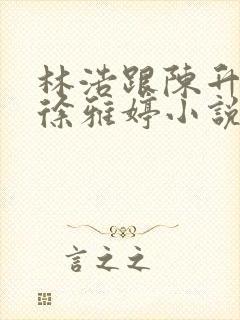 林浩跟陳升
徐雅婷小說
言之之